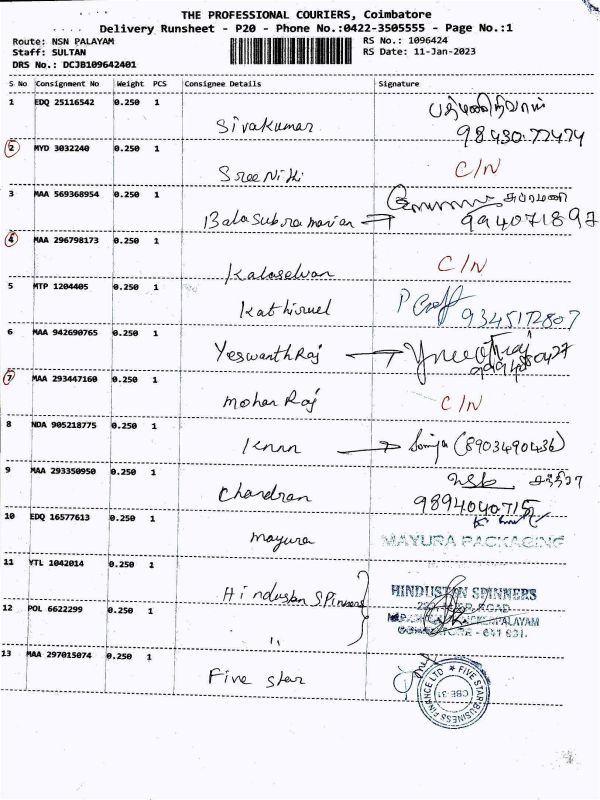 THE PROFESSIONAL COURIERS, Coimbatore
Delivery Runsheet - P20 - Phone No.:0422-3505555 - Page No.:1
Route: NSN PALAYAM
RS No.: 1096424
Staff: SULTAN
RS Date: 11-Jan-2023
DRS No.: DCJB109642401
S No Consignment No Weight PCS Consignee Details Signature
1 EDQ 25116542 0.250 1
Sivakumar
98430 77474
2 MYD 3032240 0.250 1
SreeNiki C/N
3 MAA 569368954 0.250 1
சுப்ரமணி
Balasubramanian 994071897
4 MAA 296798173 0.250 1
Kalaselvan C/N
5 MTP 1204405 0.250 1
Kathirvel 9345172807
6 MAA 942690765 0.250 1
YeswanthRaj
7 MAA 293447160 0.250 1
Mohan Raj C/N
8 NDA 905218775 0.250 1
Knnn (8903490436)
9 MAA 293350950 0.250 1
Chandran
10 EDQ 16577613 0.250 1
mayura MAYURA PACKAGING
11 YTL 1042014 0.250 1
Hindustan Spinners HINDUSTAN SPINNERS
12 POL 6622299 0.250 1
COIMBATORE - 641 031.
"
13 MAA 297015074 0.250 1
Five star
FIVE STAR BUSINESS FINANCE LTD
CBE-31